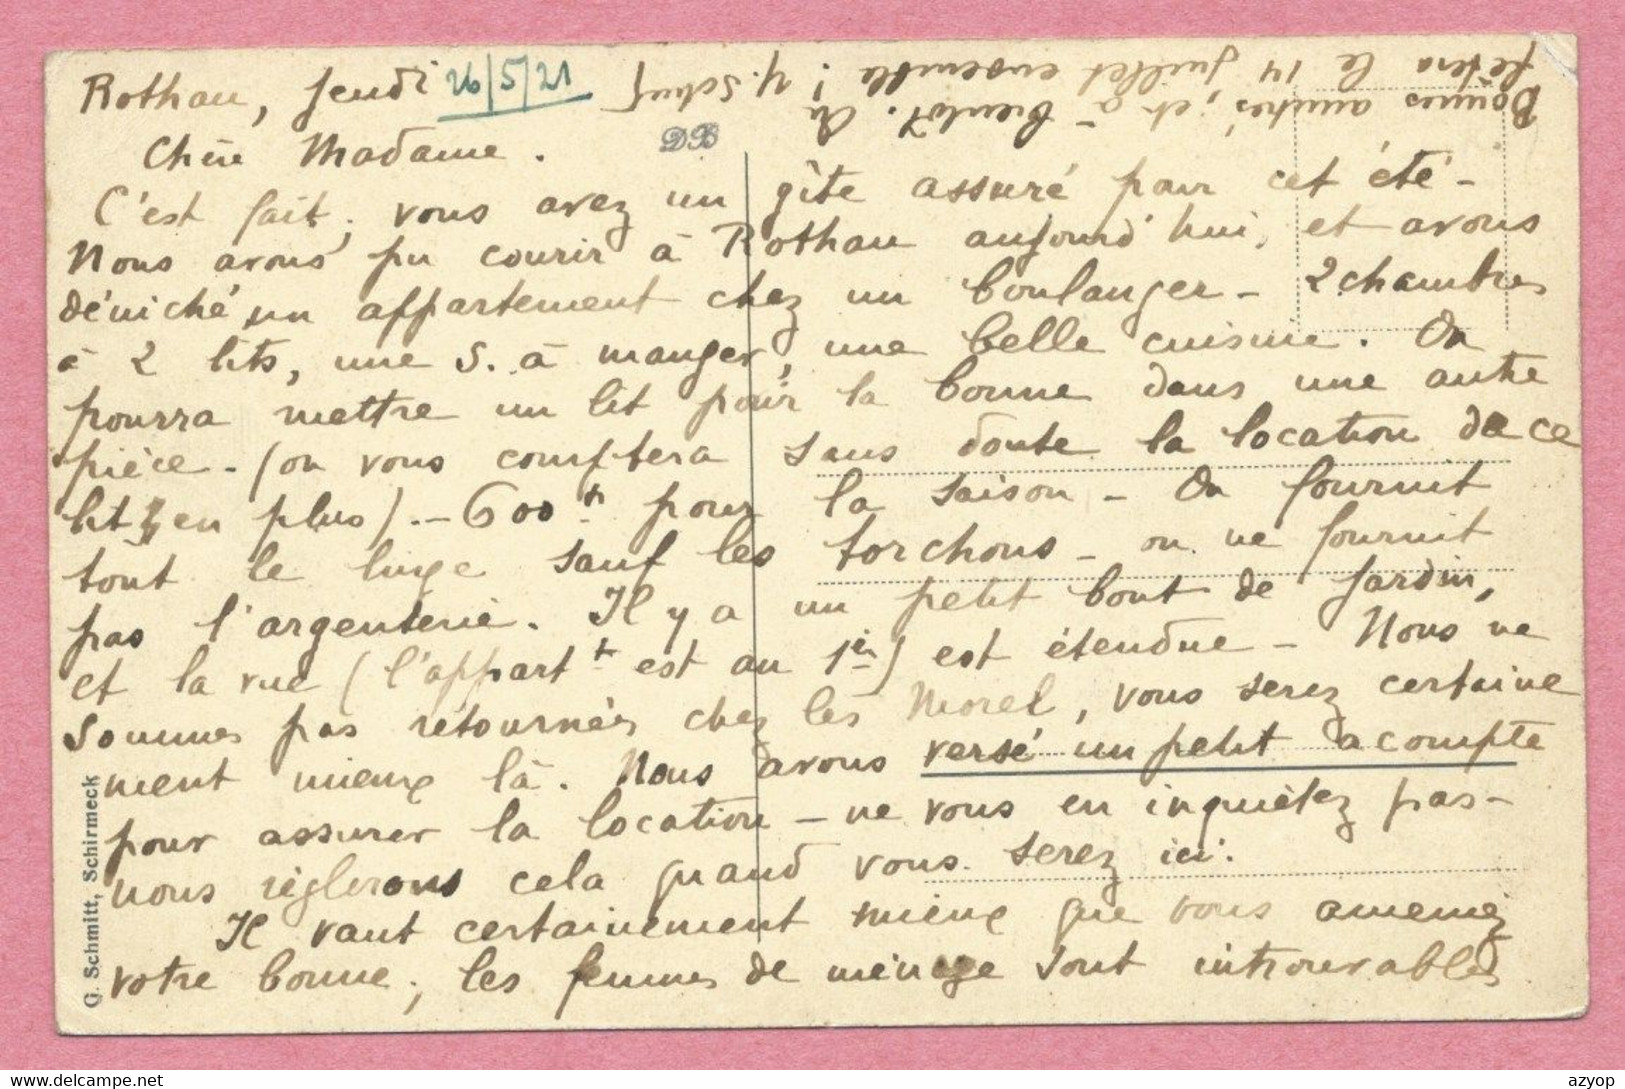 Rothau, Jeudi 26/5/21
Chère Madame.
C'est fait, vous avez un gîte assuré pour cet été -
Nous avons pu courir à Rothau aujourd'hui, et avons
déniché un appartement chez un boulanger - 2 chambres
à 2 lits, une S. à manger, une belle cuisine. On
pourra mettre un lit pour la bonne dans une autre
pièce - (on vous comptera sans doute la location de ce
lit en plus) - 600 fr pour la saison - On fournit
tout le linge sauf les torchons - on ne fournit
pas l'argenterie. Il y a un petit bout de jardin,
et la vue (l'appartt est au 1er) est étendue - Nous ne
sommes pas retournées chez les Morel, vous serez certaine
ment mieux là. Nous avons versé un petit acompte
pour assurer la location - ne vous en inquiétez pas -
nous règlerons cela quand vous serez ici.
Il vaut certainement mieux que vous ameniez
votre bonne, les femmes de ménage sont introuvables
Bonnes amitiés, et à bientôt. On
fêtera le 14 Juillet ensemble !
DB
G. Schmitt, Schirmeck
azyop